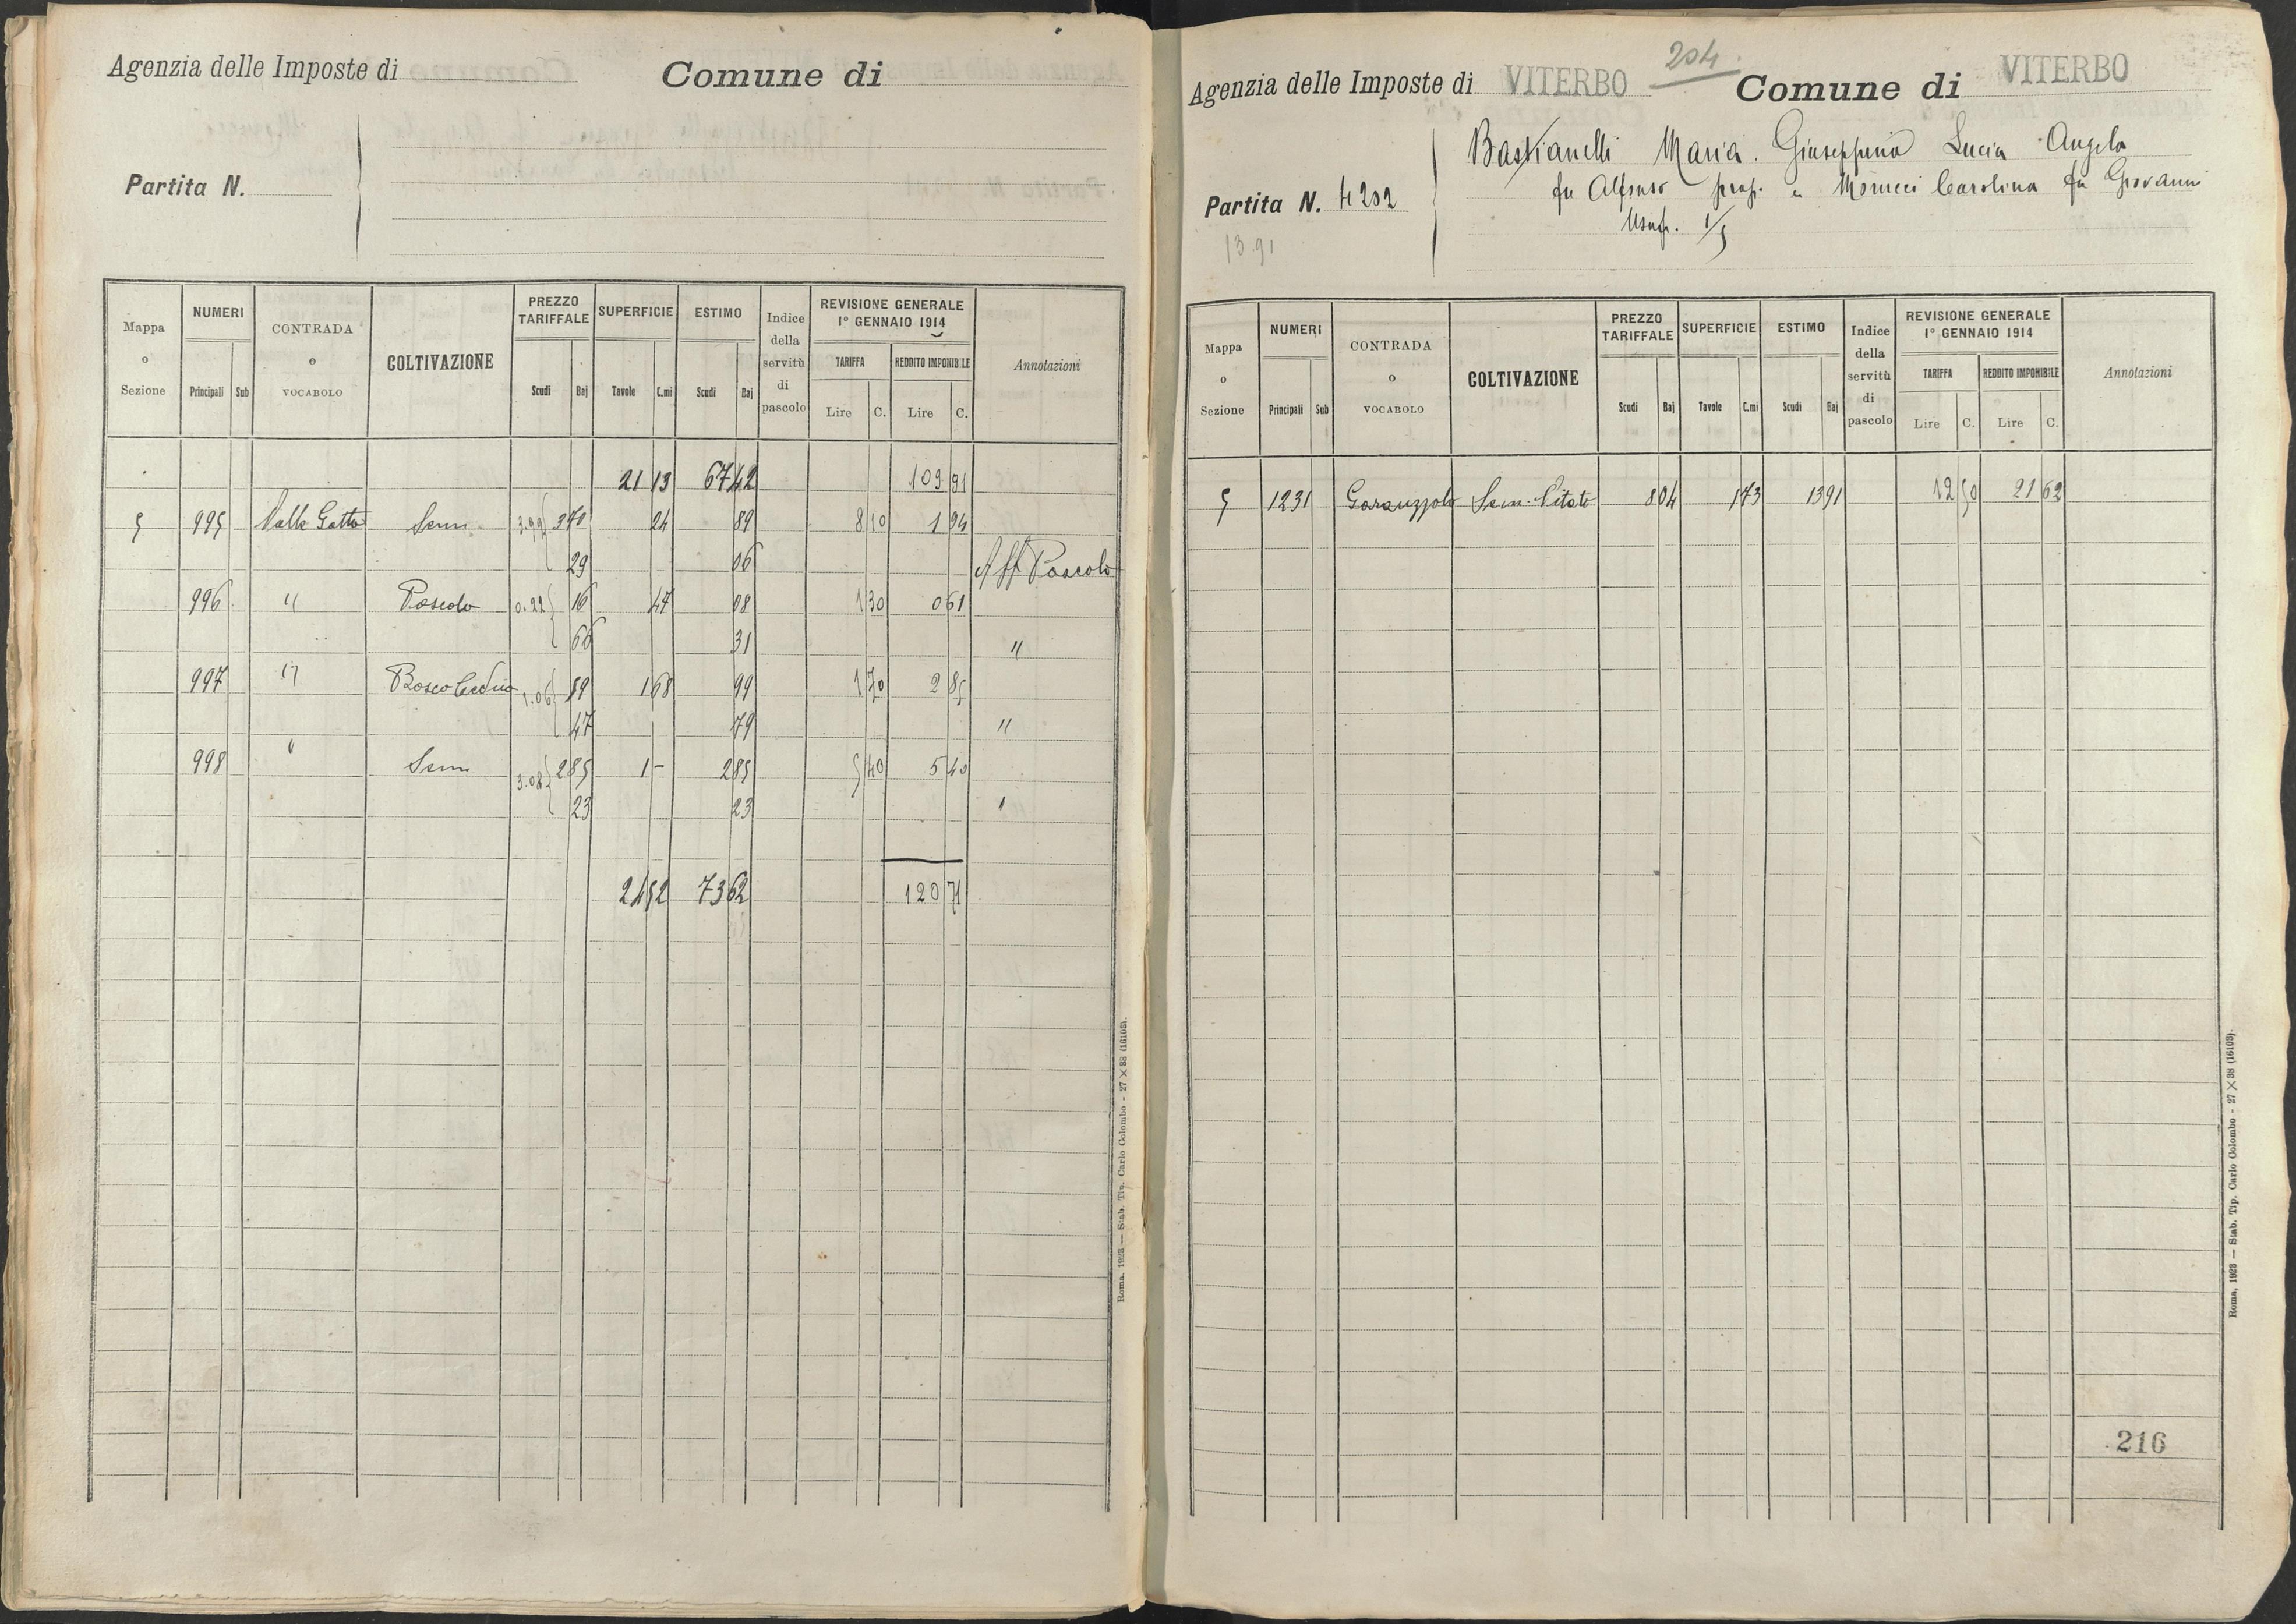 Agenzia delle Imposte di
Comune di
Partita N.
Mappa o Sezione
NUMERI
Principali Sub
CONTRADA o VOCABOLO
COLTIVAZIONE
PREZZO TARIFFALE
Scudi Baj
SUPERFICIE
Tavole C.mi
ESTIMO
Scudi Baj
Indice della servitù di pascolo
REVISIONE GENERALE
1° GENNAIO 1914
TARIFFA REDDITO IMPONIBILE
Lire C. Lire C.
Annotazioni
21 13 67 42 109 91
5 995 Valle Gatto Sem. 3.99 3 70 24 89 8 10 1 94
29 06 Aff. Pascolo
996 " Pascolo 0.22 16 47 08 1 30 0 61
66 31 "
997 " Bosco Ceduo 1.06 59 1 68 99 1 70 2 85
47 79 "
998 " Sem 3.08 2 85 1 - 2 85 5 40 5 40
23 23 "
24 52 73 62 120 71
Roma, 1923 — Stab. Tip. Carlo Colombo - 27 × 38 (16103).
204.
Agenzia delle Imposte di VITERBO Comune di VITERBO
Partita N. 4202
1391
Bastianelli Maria. Giuseppina Lucia Angela
fu Alfonso prop. e Monucci Carolina fu Giovanni
Usuf. 1/5
Mappa o Sezione
NUMERI
Principali Sub
CONTRADA o VOCABOLO
COLTIVAZIONE
PREZZO TARIFFALE
Scudi Baj
SUPERFICIE
Tavole C.mi
ESTIMO
Scudi Baj
Indice della servitù di pascolo
REVISIONE GENERALE
1° GENNAIO 1914
TARIFFA REDDITO IMPONIBILE
Lire C. Lire C.
Annotazioni
5 1231 Sem. Vitato 8 04 1 73 13 91 12 50 21 62
216
Roma, 1923 — Stab. Tip. Carlo Colombo - 27 × 38 (16103).